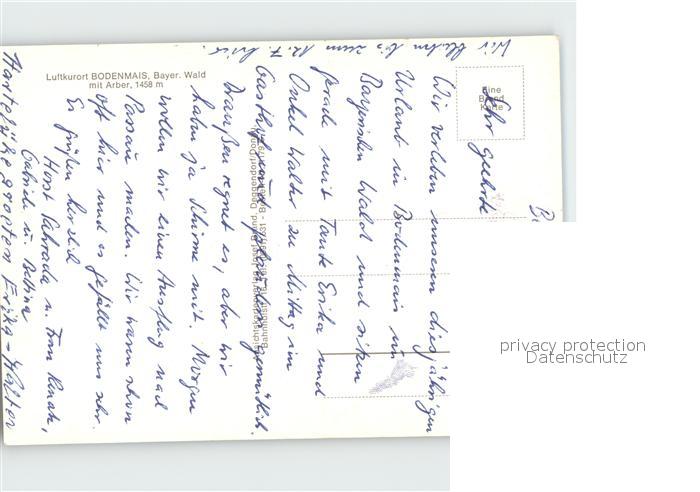 Luftkurort BODENMAIS, Bayer. Wald
mit Arber, 1458 m
Eine
Brand
Karte
Wir bleiben bis zum 12.7. hier.
Sehr geehrte
Wir verleben unseren diesjährigen
Urlaub in Bodenmais im
Bayrischen Wald und sitzen
gerade mit Tante Erika und
Onkel Walter zu Mittag im
Gasthof und haben es gemütlich.
Draußen regnet es, aber wir
haben ja Schirme mit. Morgen
wollen wir einen Ausflug nach
Passau machen. Wir waren schon
oft hier und es gefällt uns sehr.
Es grüßen herzlich
Horst u. Frau Renate,
Gabriele u. Bettina
Herzliche Erika - Walter
privacy protection
Datenschutz